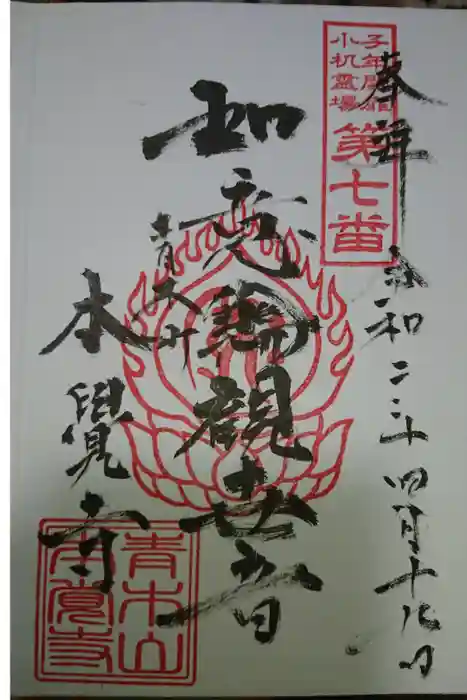 奉拝
子年開扉
小机霊場
第七番
令和二年四月十八日
如意輪観世音
青木山
本覺寺
青木山
本覚寺